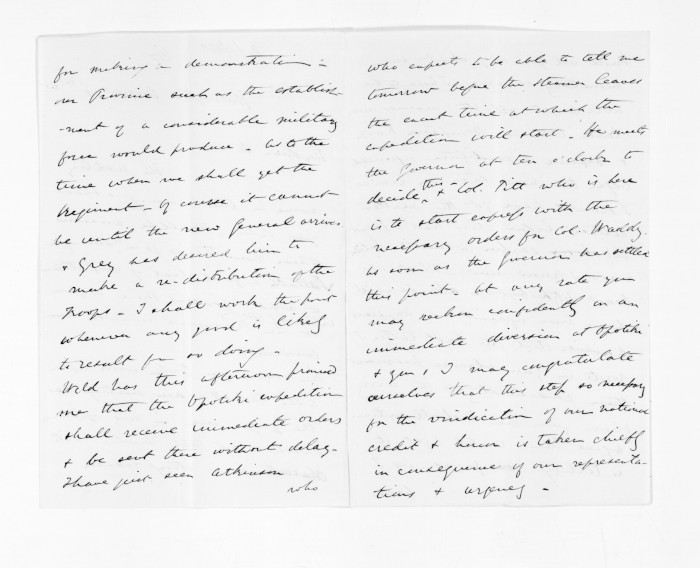 for making a demonstration in
our Province such as the establish-
-ment of a considerable military
force would produce - As to the
time when we shall get the
Regiment - of course it cannot
be until the new General arrives
& Grey has desired him to
make a re-distribution of the
Troops - I shall work the point
whenever any good is likely
to result from so doing -
Weld has this afternoon promised
me that the Opotiki expedition
shall receive immediate orders
& be sent there without delay -
I have just seen Atkinson
who
who expects to be able to tell me
tomorrow before the steamer leaves
the exact time at which the
expedition will start - He meets
the Governor at ten o'clock to
decide this - & Col. Pitt who is here
is to start express with the
necessary orders for Col. Waddy.
as soon as the Governor has settled
this point - At any rate you
may reckon confidently on an
immediate diversion at Opotiki
& you & I may congratulate
ourselves that this step so necessary
for the vindication of our national
credit & honor is taken chiefly
in consequence of our representa-
tions & urgency -